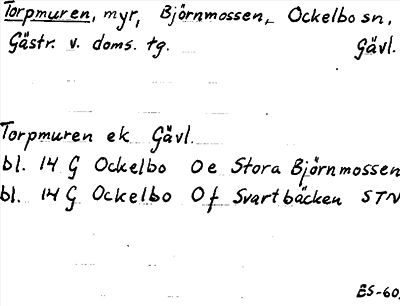 Torpmuren, myr, Björnmossen, Ockelbo sn,
Gästr. v. doms. tg. Gävl.
Torpmuren ek Gävl.
bl. 14 G Ockelbo 0e Stora Björnmossen
bl. 14 G Ockelbo 0f Svartbäcken STN
ES-60